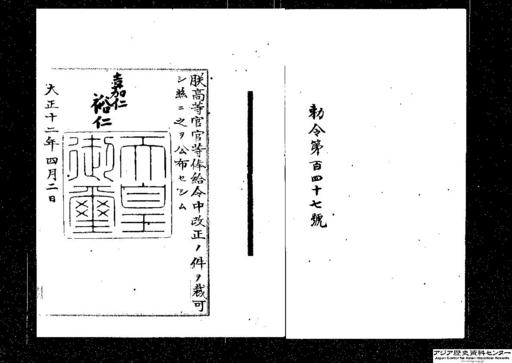 勅令第百四十七號
朕高等官官等俸給令中改正ノ件ヲ裁可
シ茲ニ之ヲ公布セシム
嘉仁
裕仁
天皇
御璽
大正十二年四月二日
アジア歴史資料センター
Japan Center for Asian Historical Records